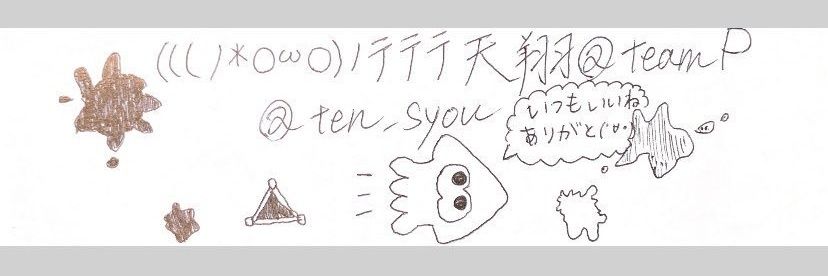 (((ﾉ*OωO)ﾉテテテ天翔@teamP
@ten_syou
いつもいいね
ありがと(･ω･)